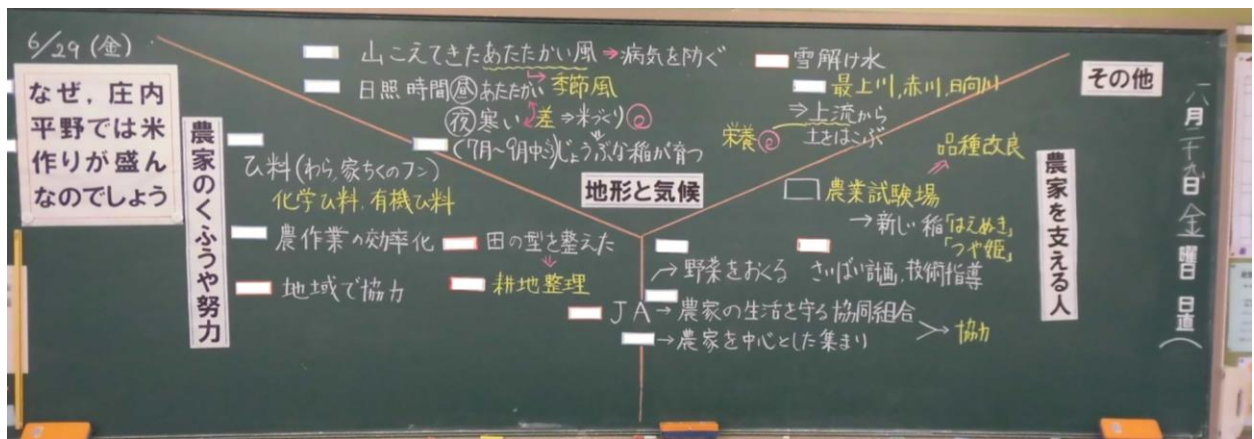 6/29 (金)
なぜ，庄内
平野では米
作りが盛ん
なのでしょう
農家のくふうや努力
ひ料(わら，家ちくのフン)
化学ひ料，有機ひ料
農作業の効率化
地域で協力
田の型を整えた
耕地整理
地形と気候
山こえてきたあたたかい風→病気を防ぐ
日照時間 昼 あたたかい→季節風
夜 寒い 差⇒米づくり
(7月〜9月中心)じょうぶな稲が育つ
雪解け水
最上川，赤川，日向川
⇒上流から
土をはこぶ
栄養
その他
農家を支える人
品種改良
農業試験場
→新しい稲「はえぬき」
「つや姫」
野菜をおくる
さいばい計画，技術指導
JA→農家の生活を守る協同組合
→農家を中心とした集まり
協力
六月二十九日 金曜日 日直(